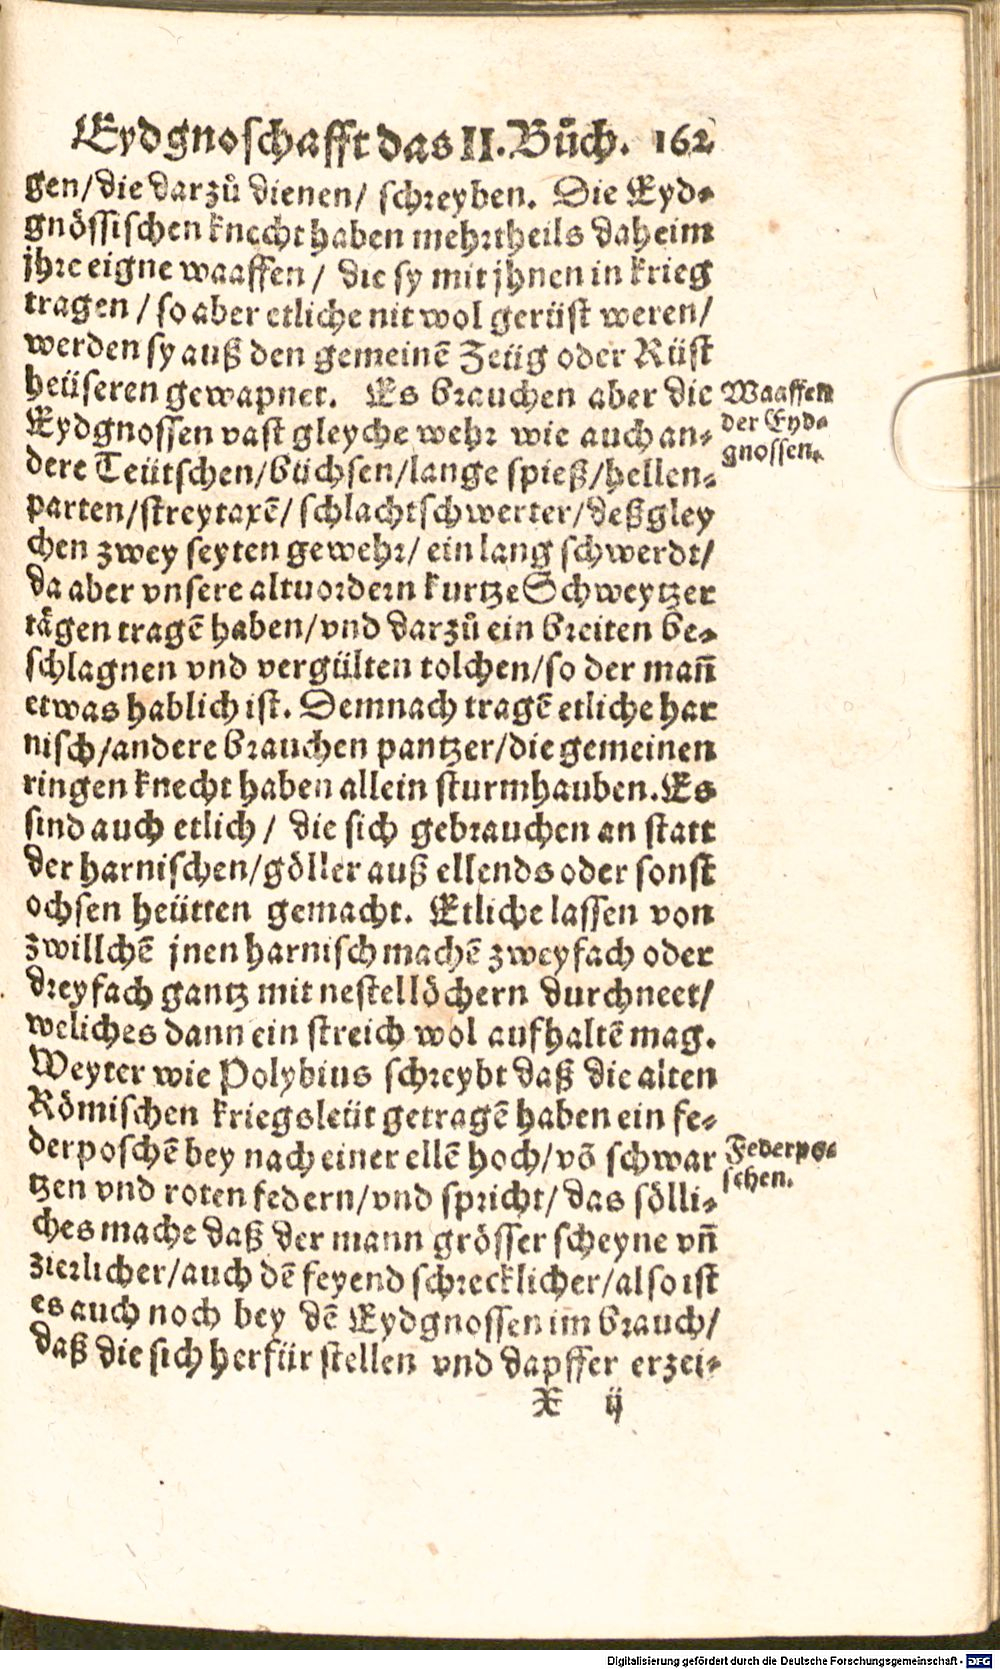 Eydgnoschafft das II. Bůch. 162
gen/die darzů dienen/ schreyben. Die Eyd⸗
gnössischen knecht haben mehrtheils daheim
jhre eigne waaffen / die sy mit jhnen in krieg
tragen / so aber etliche nit wol gerüst weren/
werden sy auß den gemeinē Zeüg oder Rüst
heüseren gewapnet. Es brauchen aber die
Eydgnossen vast gleyche wehr wie auch an⸗
dere Teütschen/büchsen/lange spieß/hellen⸗
parten/streytaxē/ schlachtschwerter/deßgley
chen zwey seyten gewehr/ ein lang schwerdt/
da aber vnsere altuordern kurtze Schweytzer
tägen tragē haben/vnd darzů ein breiten be⸗
schlagnen vnd vergülten tolchen/so der mañ
etwas hablich ist. Demnach tragē etliche har
nisch/andere brauchen pantzer/die gemeinen
ringen knecht haben allein sturmhauben. Es
sind auch etlich / die sich gebrauchen an statt
der harnischen/göller auß ellends oder sonst
ochsen heütten gemacht. Etliche lassen von
zwillchē jnen harnisch machē zweyfach oder
dreyfach gantz mit nestellöchern durchneet/
weliches dann ein streich wol aufhaltē mag.
Weyter wie Polybius schreybt daß die alten
Römischen kriegsleüt getragē haben ein fe⸗
derposchē bey nach einer ellē hoch/võ schwar
tzen vnd roten federn/vnd spricht/ das sölli⸗
ches mache daß der mann grösser scheyne vñ
zierlicher/auch dē feyend schrecklicher/also ist
es auch noch bey dē Eydgnossen im brauch/
daß die sich herfür stellen vnd dapffer erzei⸗
X ij
Waaffen
der Eyd⸗
gnossen.
Federpo⸗
schen.
Digitalisierung gefördert durch die Deutsche Forschungsgemeinschaft - DFG